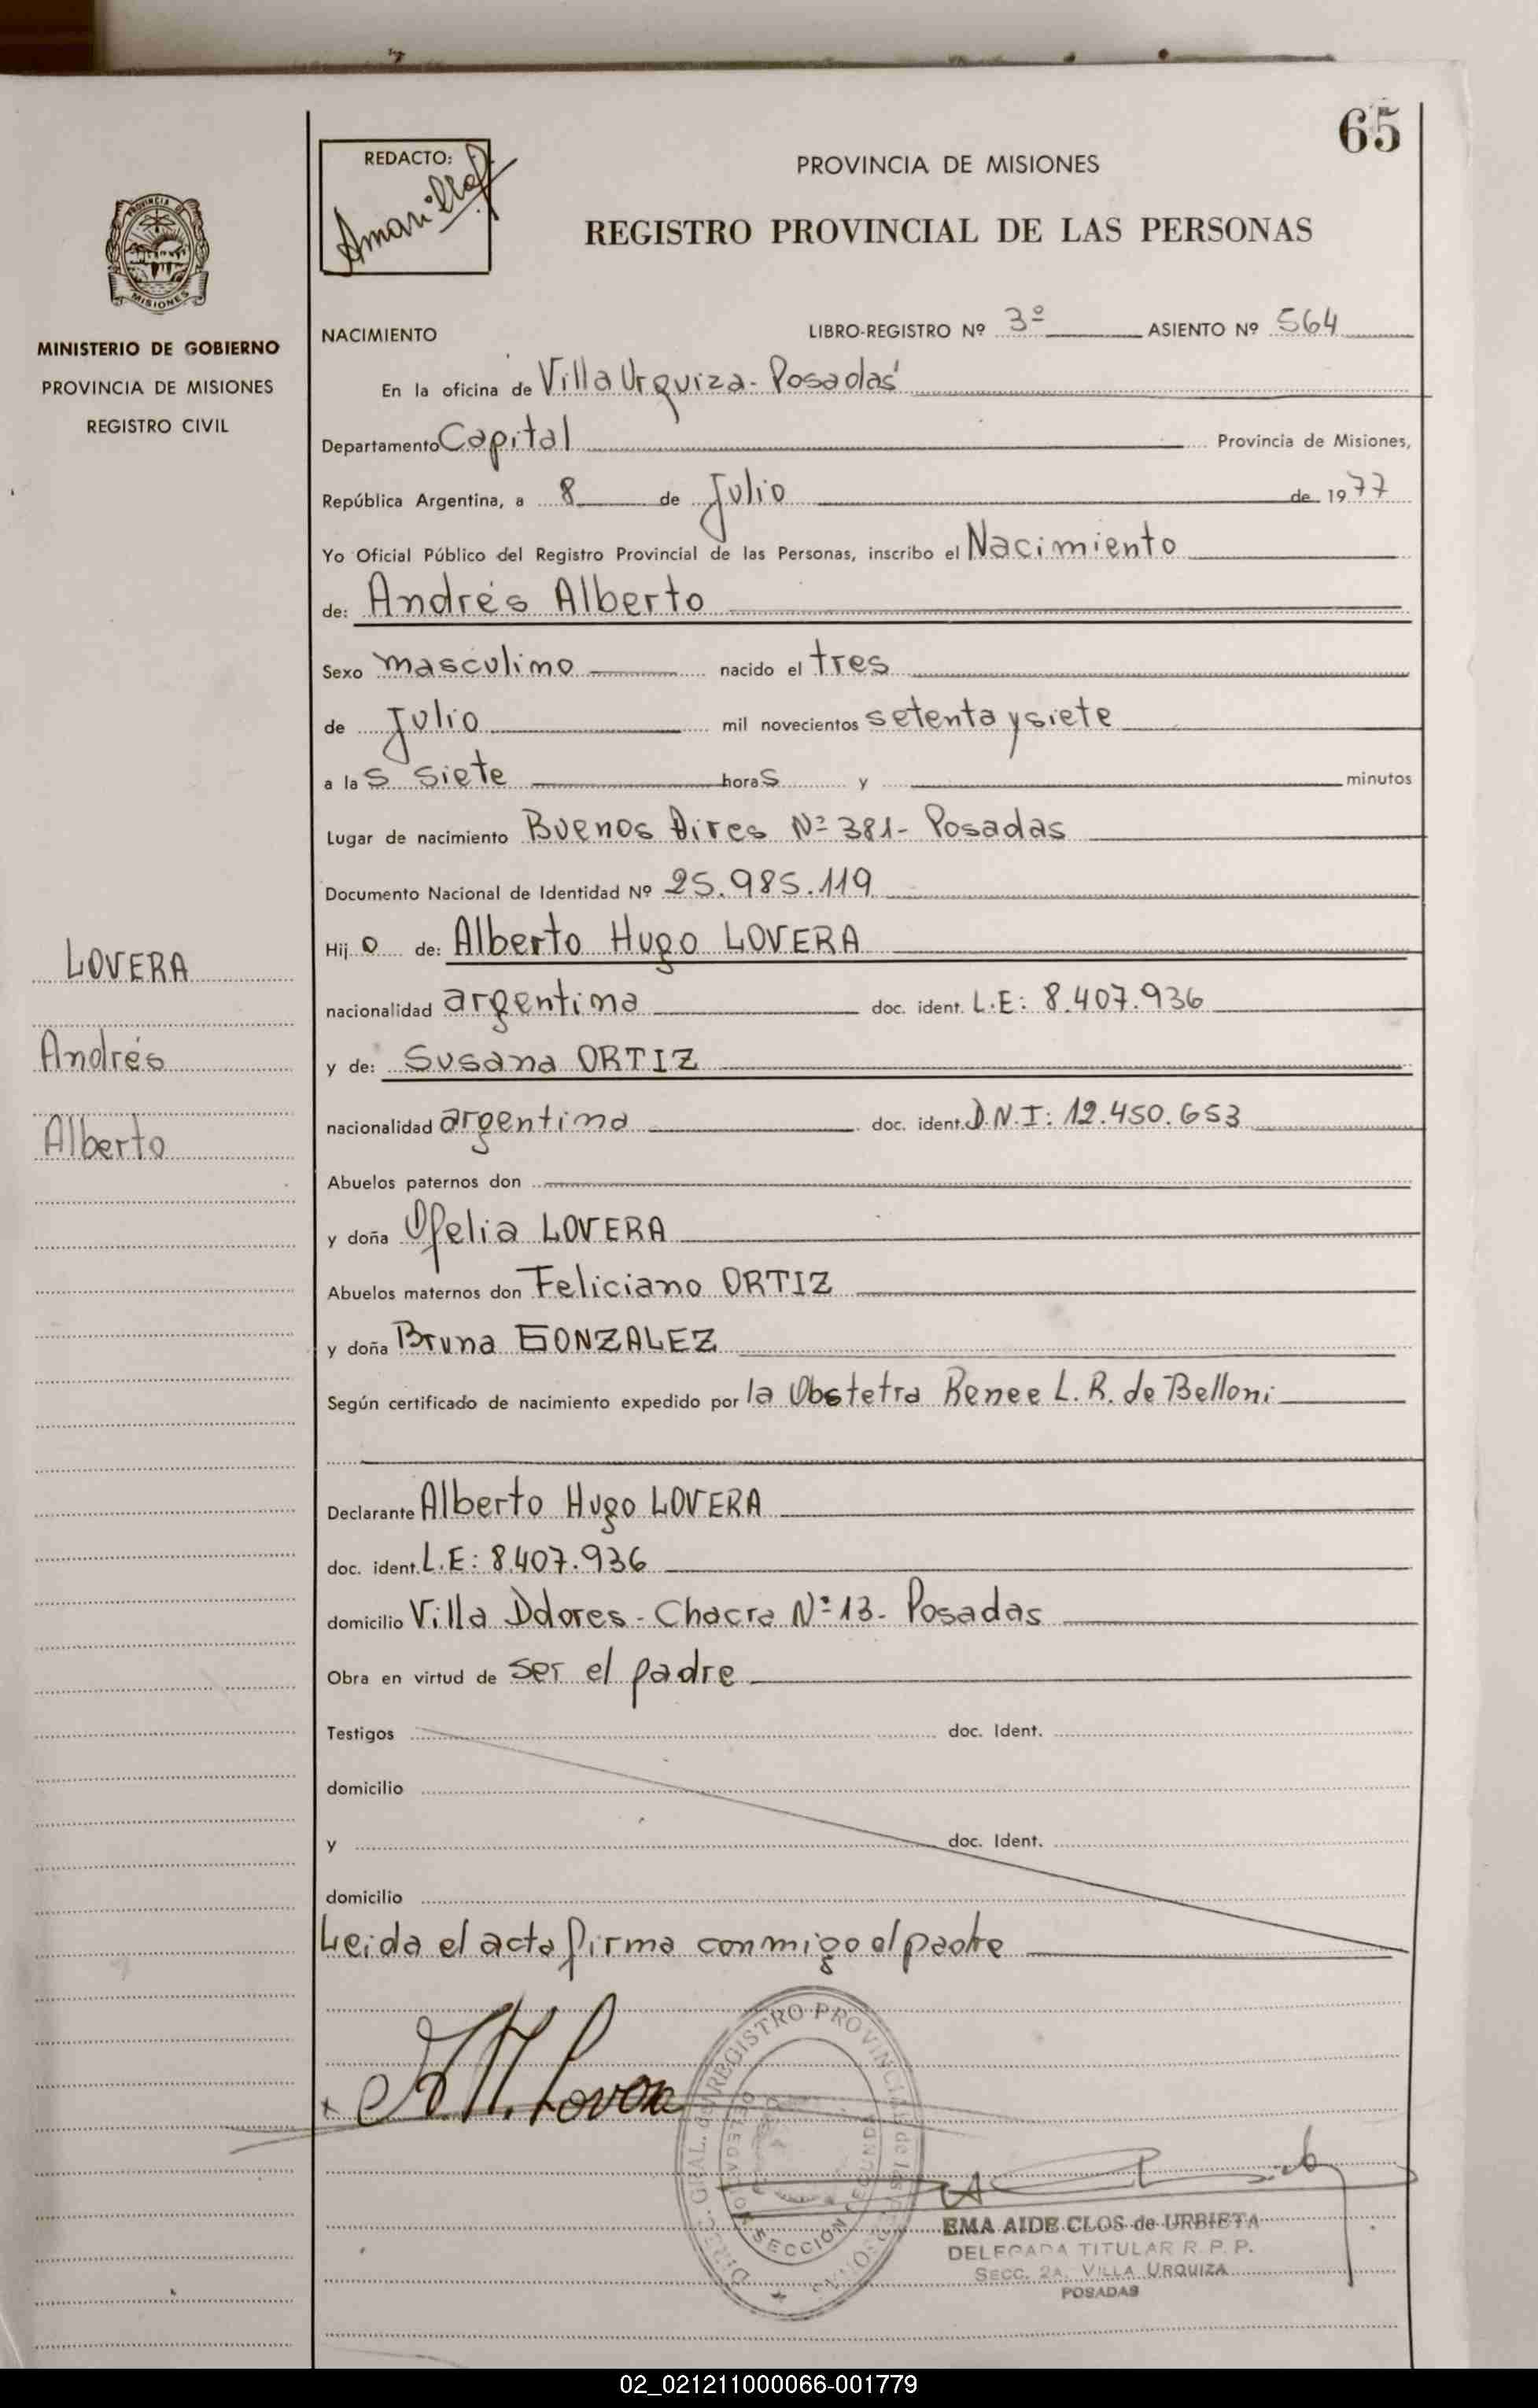 65
REDACTO:
Amarilla
PROVINCIA DE MISIONES
REGISTRO PROVINCIAL DE LAS PERSONAS
PROVINCIA DE
MISIONES
MINISTERIO DE GOBIERNO
PROVINCIA DE MISIONES
REGISTRO CIVIL
LOVERA
Andrés
Alberto
NACIMIENTO LIBRO-REGISTRO Nº 3º ASIENTO Nº 564
En la oficina de Villa Urquiza - Posadas
Departamento Capital Provincia de Misiones,
República Argentina, a 8 de Julio de 1977
Yo Oficial Público del Registro Provincial de las Personas, inscribo el Nacimiento
de: Andrés Alberto
Sexo masculino nacido el tres
de Julio mil novecientos setenta y siete
a las siete horas y minutos
Lugar de nacimiento Buenos Aires Nº 381 - Posadas
Documento Nacional de Identidad Nº 25.985.119
Hijo de: Alberto Hugo LOVERA
nacionalidad argentina doc. ident. L.E: 8.407.936
y de: Susana ORTIZ
nacionalidad argentina doc. ident. D.N.I: 12.450.653
Abuelos paternos don
y doña Ofelia LOVERA
Abuelos maternos don Feliciano ORTIZ
y doña Bruna GONZALEZ
Según certificado de nacimiento expedido por la Obstetra Renee L. R. de Belloni
Declarante Alberto Hugo LOVERA
doc. ident. L.E: 8.407.936
domicilio Villa Dolores - Chacra Nº 13 - Posadas
Obra en virtud de ser el padre
Testigos doc. Ident.
domicilio
y doc. Ident.
domicilio
Leida el acta firma conmigo el padre
REGISTRO PROVINCIAL de las PERSONAS
DIREC. GRAL. del
DELEGACION SECCION SEGUNDA
EMA AIDE CLOS de URBIETA
DELEGADA TITULAR R. P. P.
SECC. 2A. VILLA URQUIZA
POSADAS
02_021211000066-001779